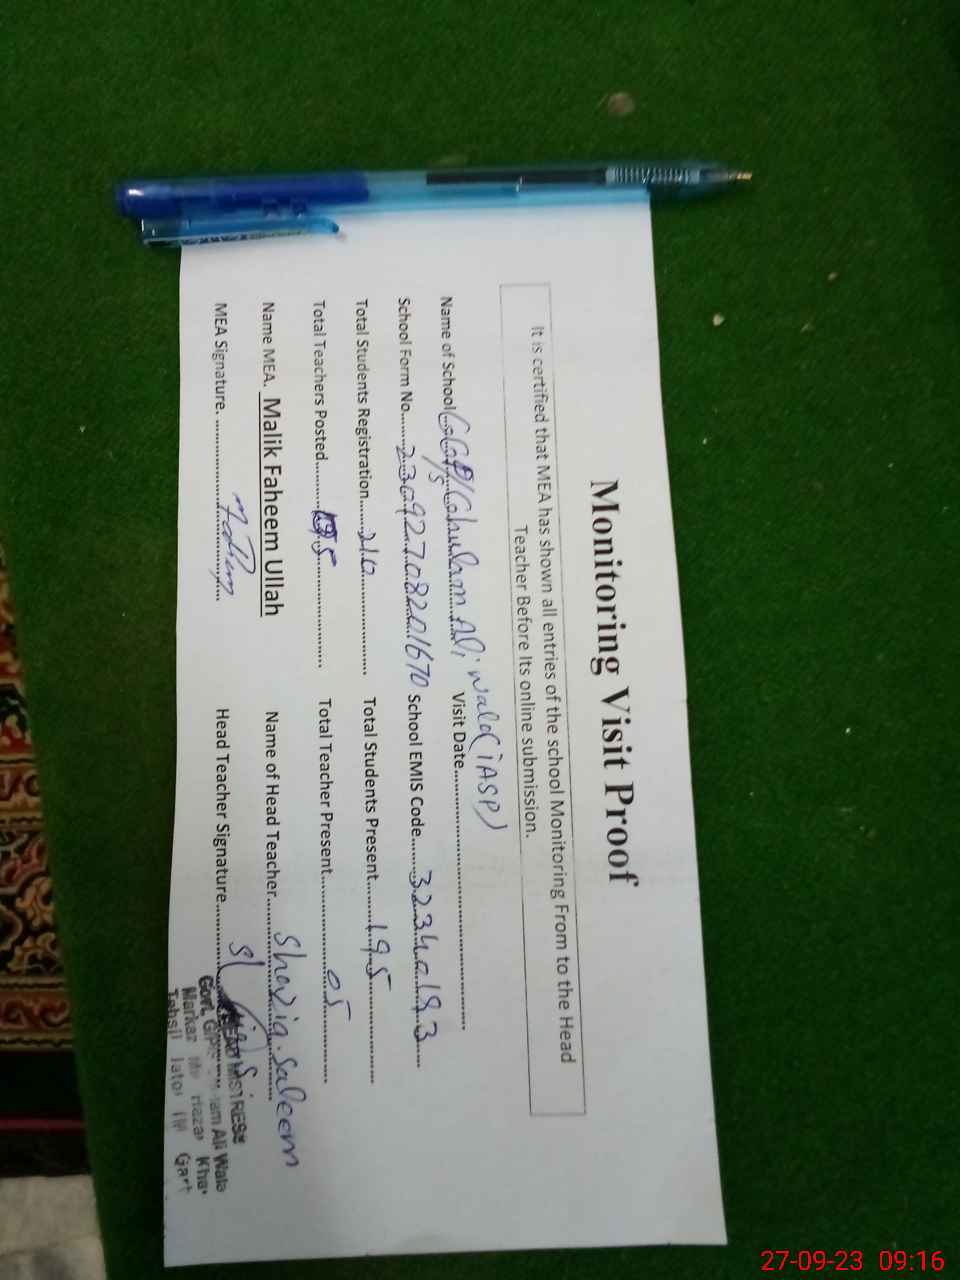 Monitoring Visit Proof
It is certified that MEA has shown all entries of the school Monitoring From to the Head
Teacher Before Its online submission.
Name of School GGP/S Ghulam Ali Wala (IASP) Visit Date..........
School Form No. 23092708201670 School EMIS Code. 32340193
Total Students Registration. 210 Total Students Present. 195
Total Teachers Posted. 05 Total Teacher Present. 05
Name MEA. Malik Faheem Ullah Name of Head Teacher. Shazia Saleem
MEA Signature. Faheem Head Teacher Signature.
HEAD MISTRESS
Govt. Ali Wala
Markaz
Tehsil Jatoi
27-09-23 09:16